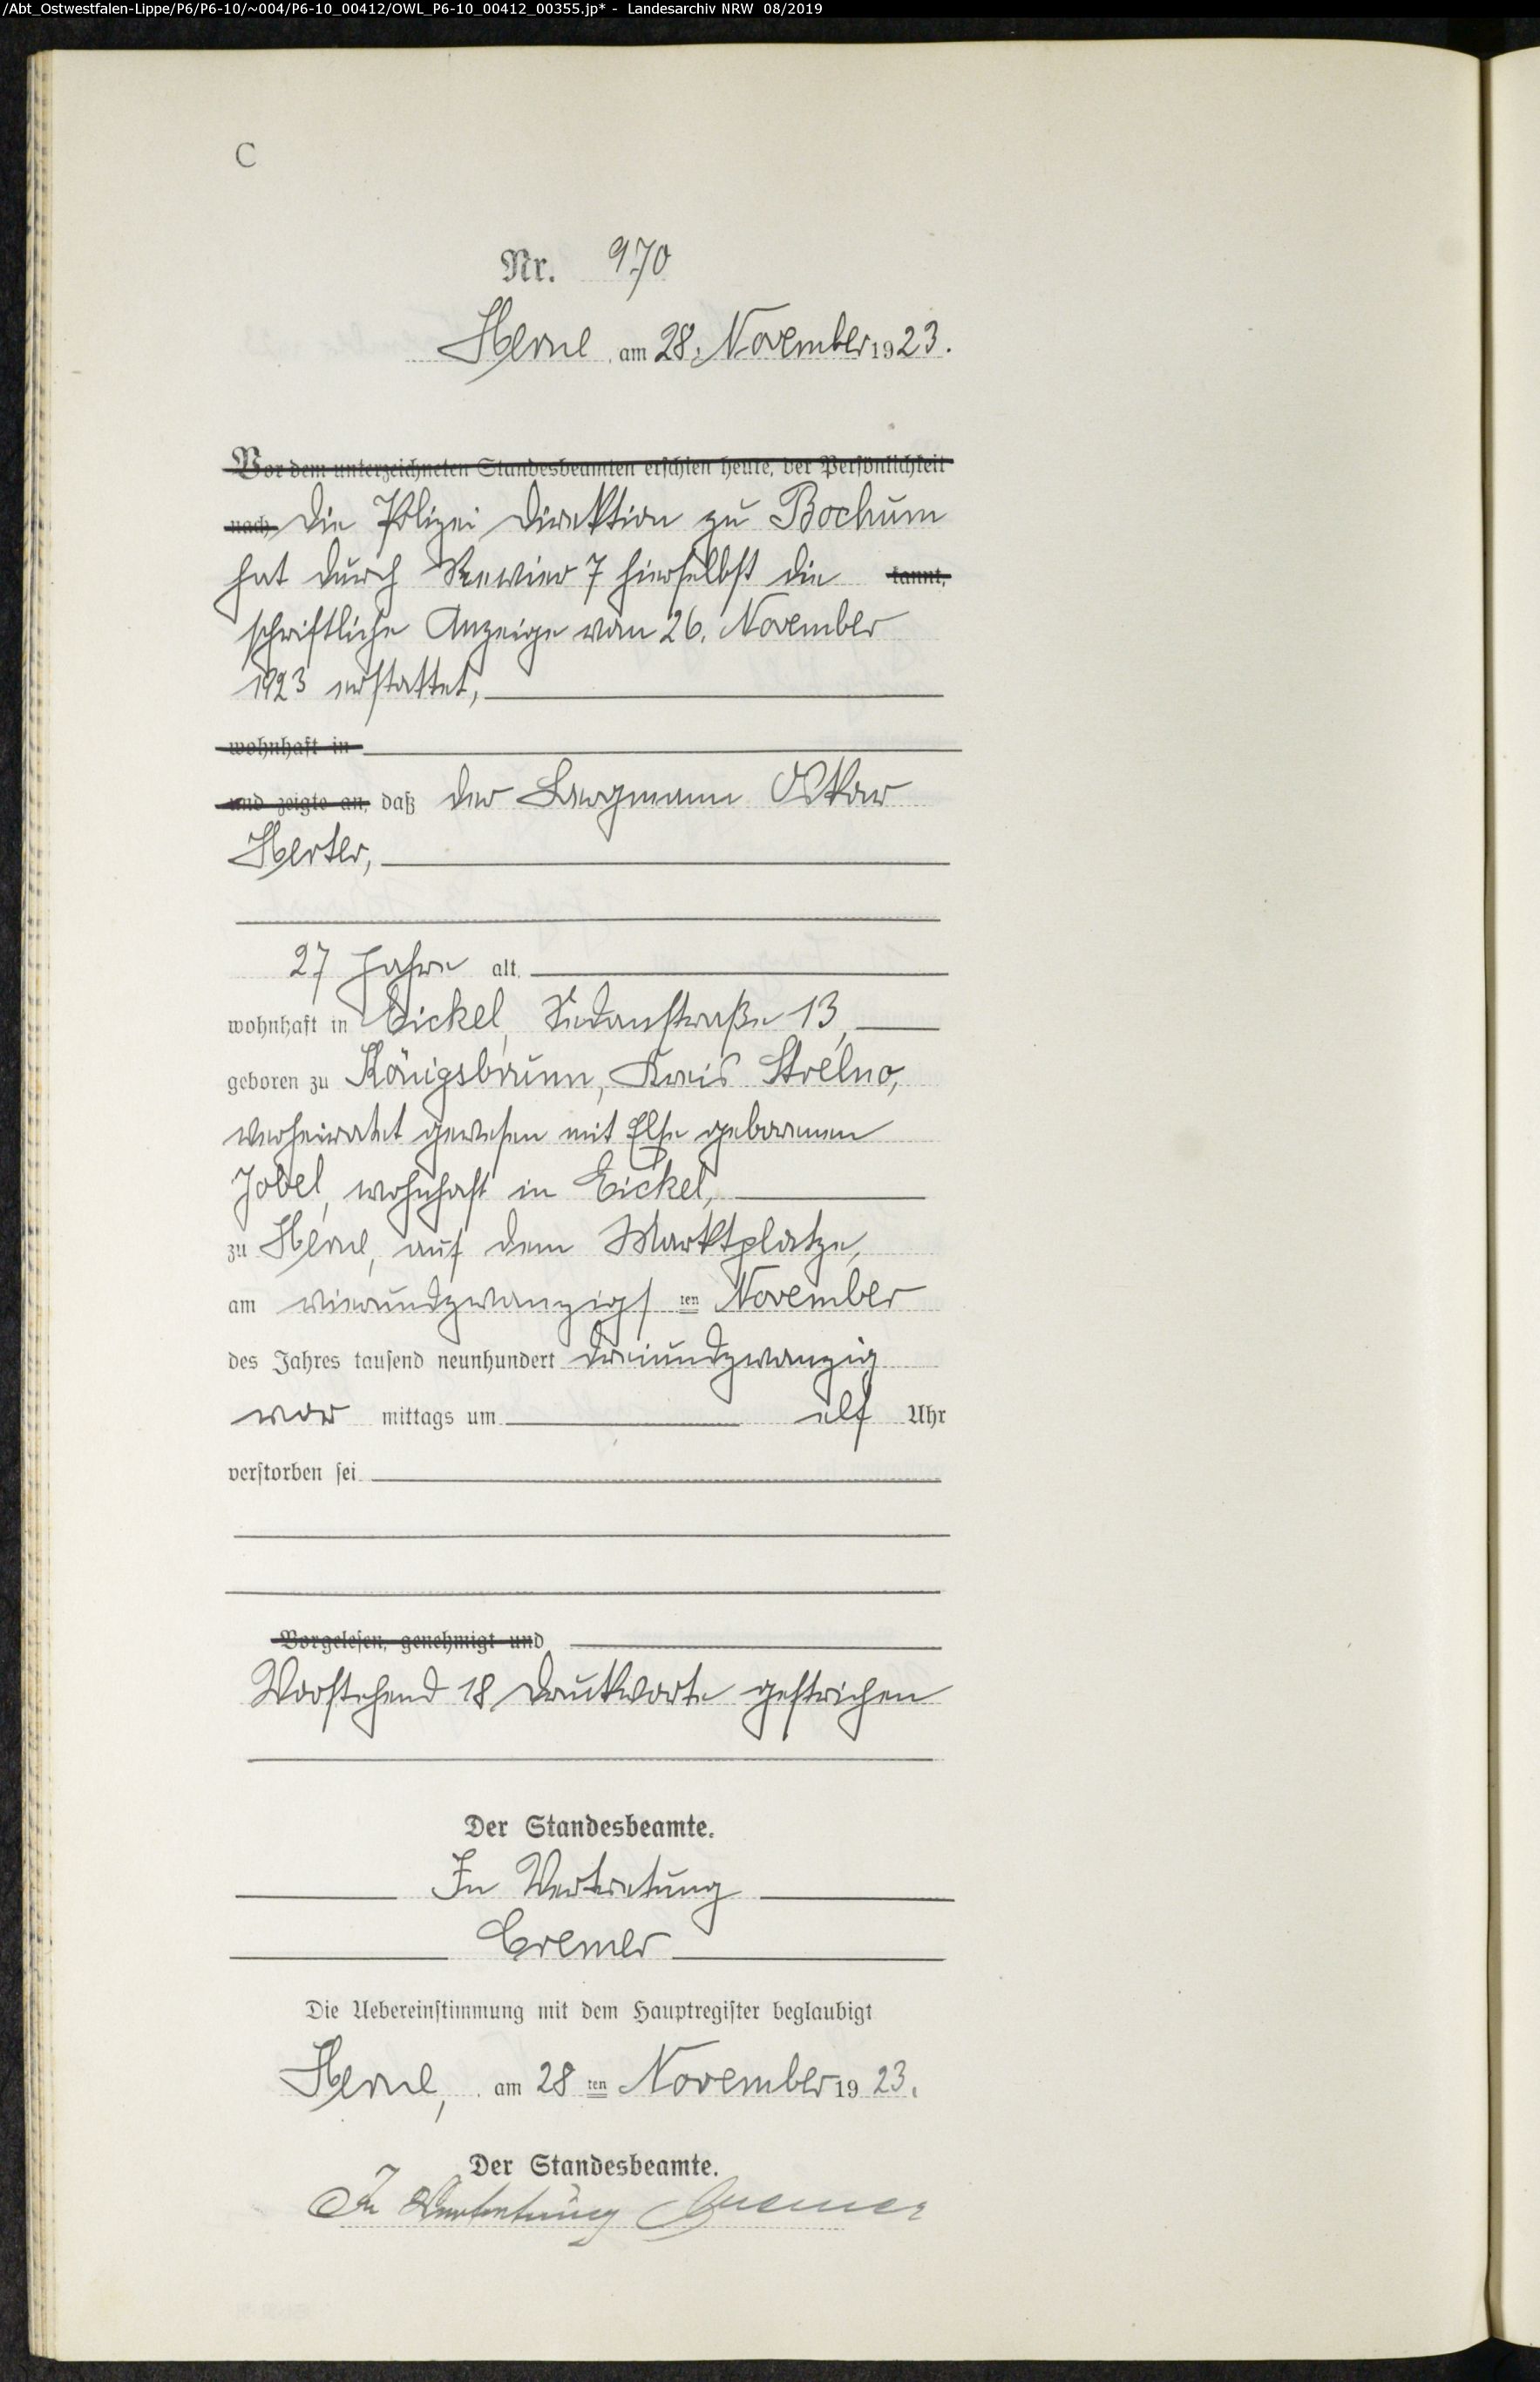 /Abt_Ostwestfalen-Lippe/P6/P6-10/~004/P6-10_00412/OWL_P6-10_00412_00355.jp* - Landesarchiv NRW 08/2019
C
Nr. 970
Herne, am 28. November 1923.
Vor dem unterzeichneten Standesbeamten erschien heute, der Persönlichkeit
nach Die Polizei Direktion zu Bochum
hat durch Revier 7 hierselbst die kannt,
schriftliche Anzeige vom 26. November
1923 erstattet,
wohnhaft in
und zeigte an, daß der Bergmann Oskar
Herter,
27 Jahre alt,
wohnhaft in Eickel, Sedanstraße 13,
geboren zu Königsbrunn, Kreis Strelno,
verheiratet gewesen mit Else geborenen
Jobel, wohnhaft in Eickel,
zu Herne, auf dem Marktplatze,
am vierundzwanzigsten November
des Jahres tausend neunhundert dreiundzwanzig
vor mittags um elf Uhr
verstorben sei
Vorgelesen, genehmigt und
Vorstehend 18 Druckworte gestrichen
Der Standesbeamte.
In Vertretung
Cremer
Die Uebereinstimmung mit dem Hauptregister beglaubigt
Herne, am 28 ten November 1923.
Der Standesbeamte.
In Vertretung Cremer